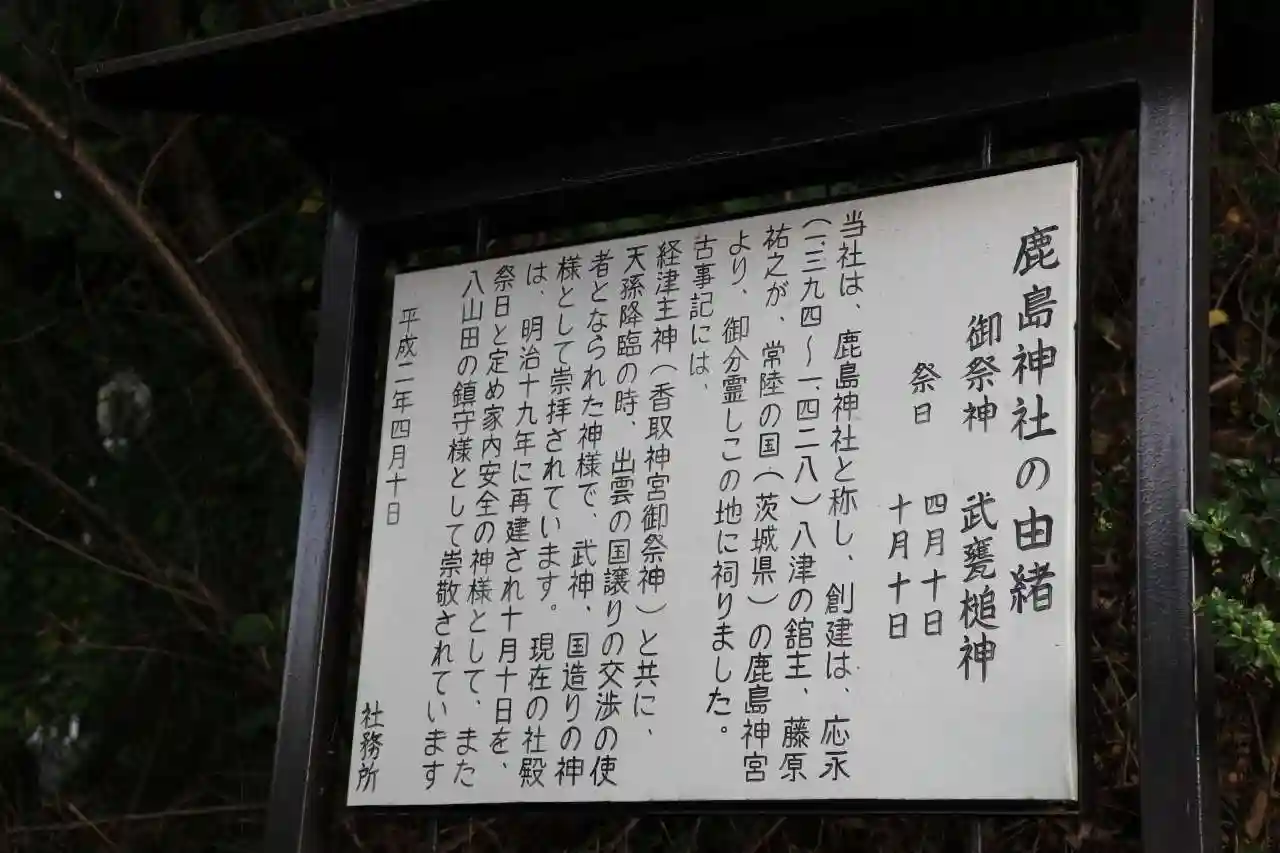 鹿島神社の由緒
御祭神 武甕槌神
祭日 四月十日
十月十日
当社は、鹿島神社と称し、創建は、応永
(一三九四～一、四二八)八津の舘主、藤原
祐之が、常陸の国(茨城県)の鹿島神宮
より、御分霊しこの地に祠りました。
古事記には、
経津主神(香取神宮御祭神)と共に、
天孫降臨の時、出雲の国譲りの交渉の使
者となられた神様で、武神、国造りの神
様として崇拝されています。現在の社殿
は、明治十九年に再建され十月十日を、
祭日と定め家内安全の神様として、また
八山田の鎮守様として崇敬されています
平成二年四月十日
社務所